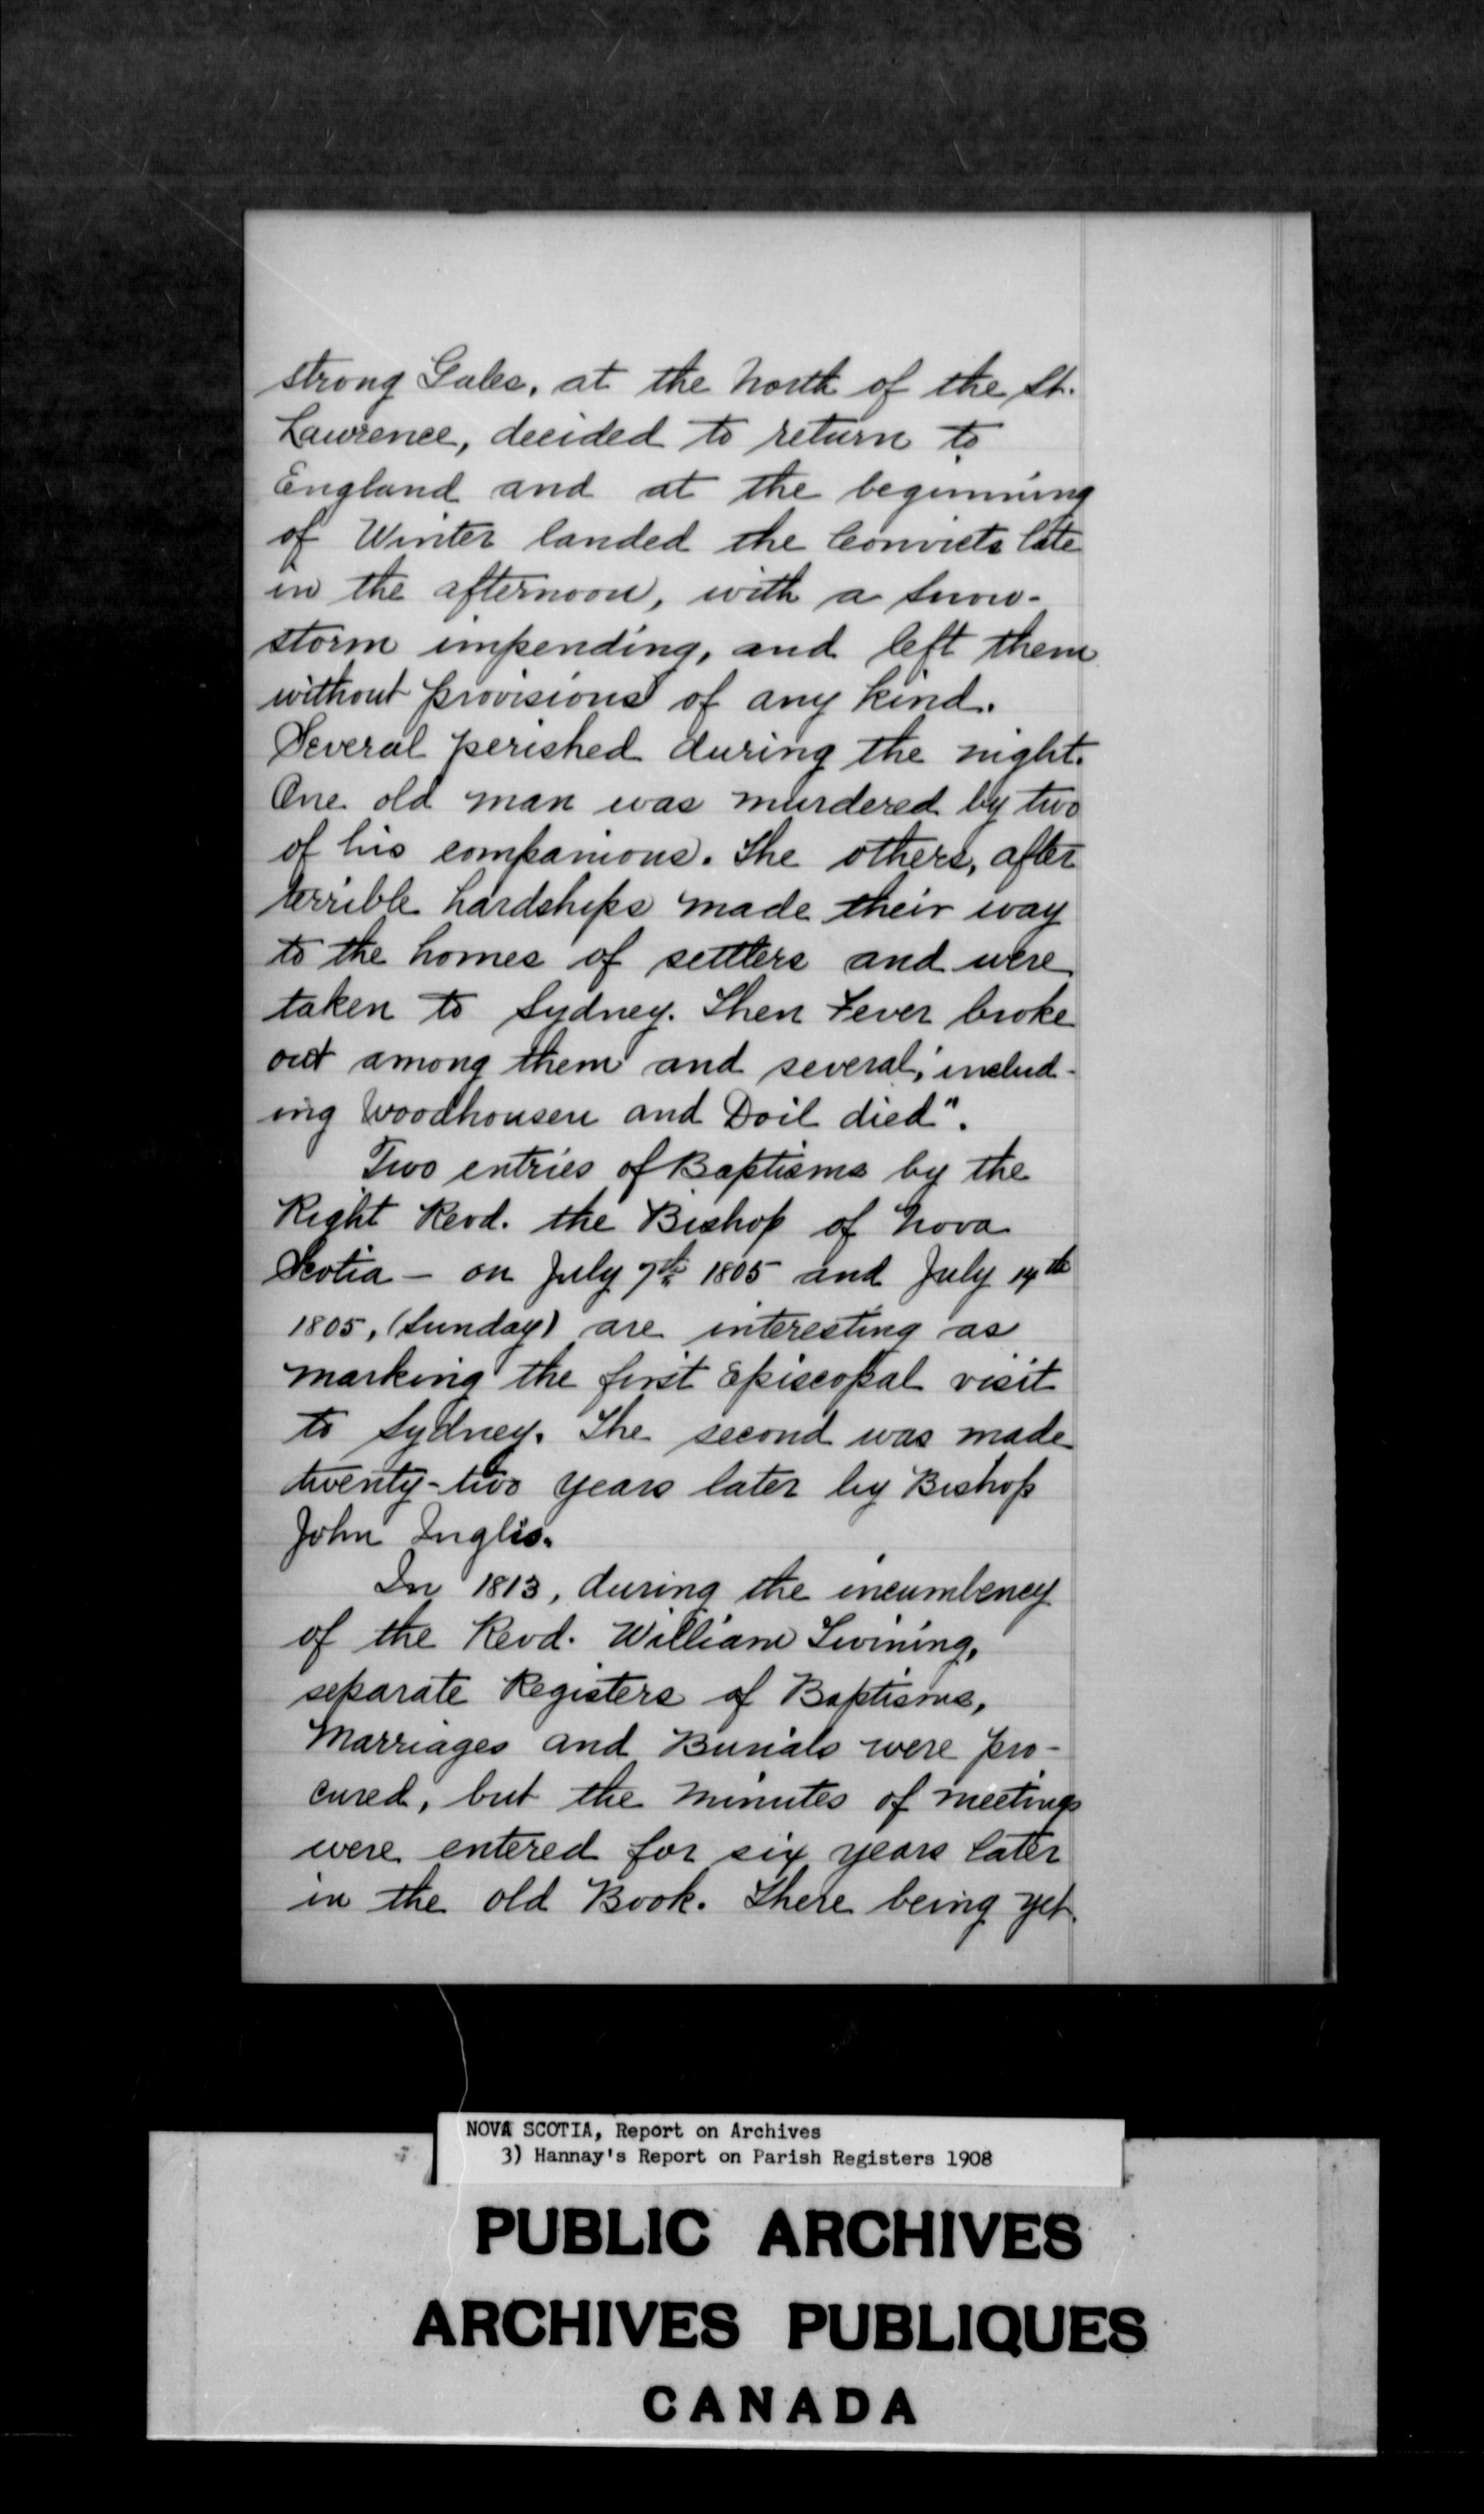 strong Gales, at the North of the St.
Lawrence, decided to return to
England and at the beginning
of Winter landed the Convicts late
in the afternoon, with a Snow-
storm impending, and left them
without provisions of any kind.
Several perished during the night.
One old man was murdered by two
of his companions. The others, after
terrible hardships made their way
to the homes of settlers and were
taken to Sydney. Then Fever broke
out among them and several, includ-
ing Woodhousen and Doil died".
Two entries of Baptisms by the
Right Revd. the Bishop of Nova
Scotia - on July 7th 1805 and July 14th
1805, (Sunday) are interesting as
marking the first Episcopal visit
to Sydney. The second was made
twenty-two years later by Bishop
John Inglis.
In 1813, during the incumbency
of the Revd. William Twining,
separate Registers of Baptisms,
Marriages and Burials were pro-
cured, but the minutes of meetings
were entered for six years later
in the old Book. There being yet
NOVA SCOTIA, Report on Archives
3) Hannay's Report on Parish Registers 1908
PUBLIC ARCHIVES
ARCHIVES PUBLIQUES
CANADA